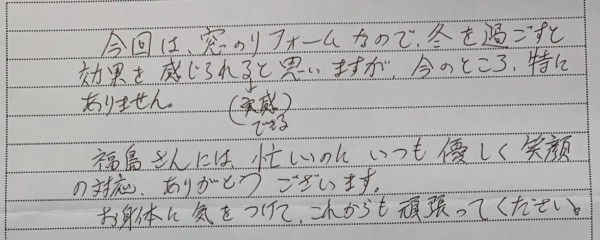 今回は、窓のリフォームなので、冬を過ごすと
効果を感じられると思いますが、今のところ、特に
ありません。
(実感)
できる
福島さんには、忙しいのに いつも優しく笑顔
の対応、ありがとうございます。
お身体に気をつけて、これからも頑張ってください。